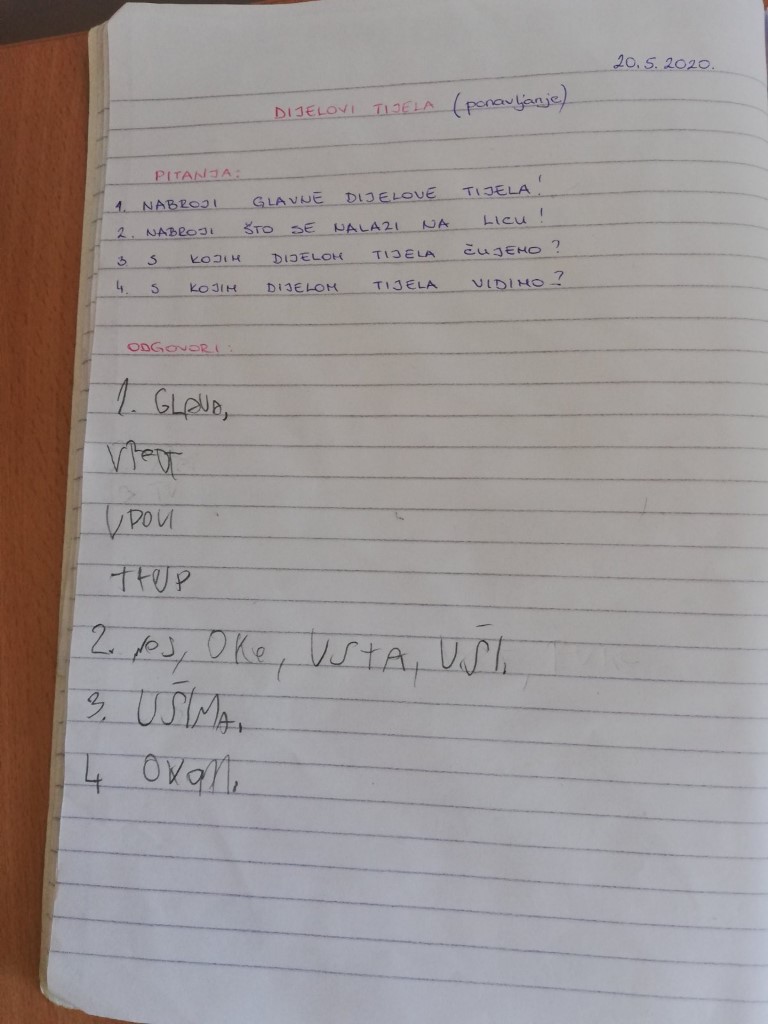 20.5.2020.
DIJELOVI TIJELA (ponavljanje)
PITANJA:
1. NABROJI GLAVNE DIJELOVE TIJELA!
2. NABROJI ŠTO SE NALAZI NA LICU!
3 S KOJIM DIJELOM TIJELA ČUJEMO?
4. S KOJIM DIJELOM TIJELA VIDIMO?
ODGOVORI:
1. GLAVA,
UDOVI
2. nos, OKo, USTA, UŠI.
3. UŠIMA.
4 OKOM.